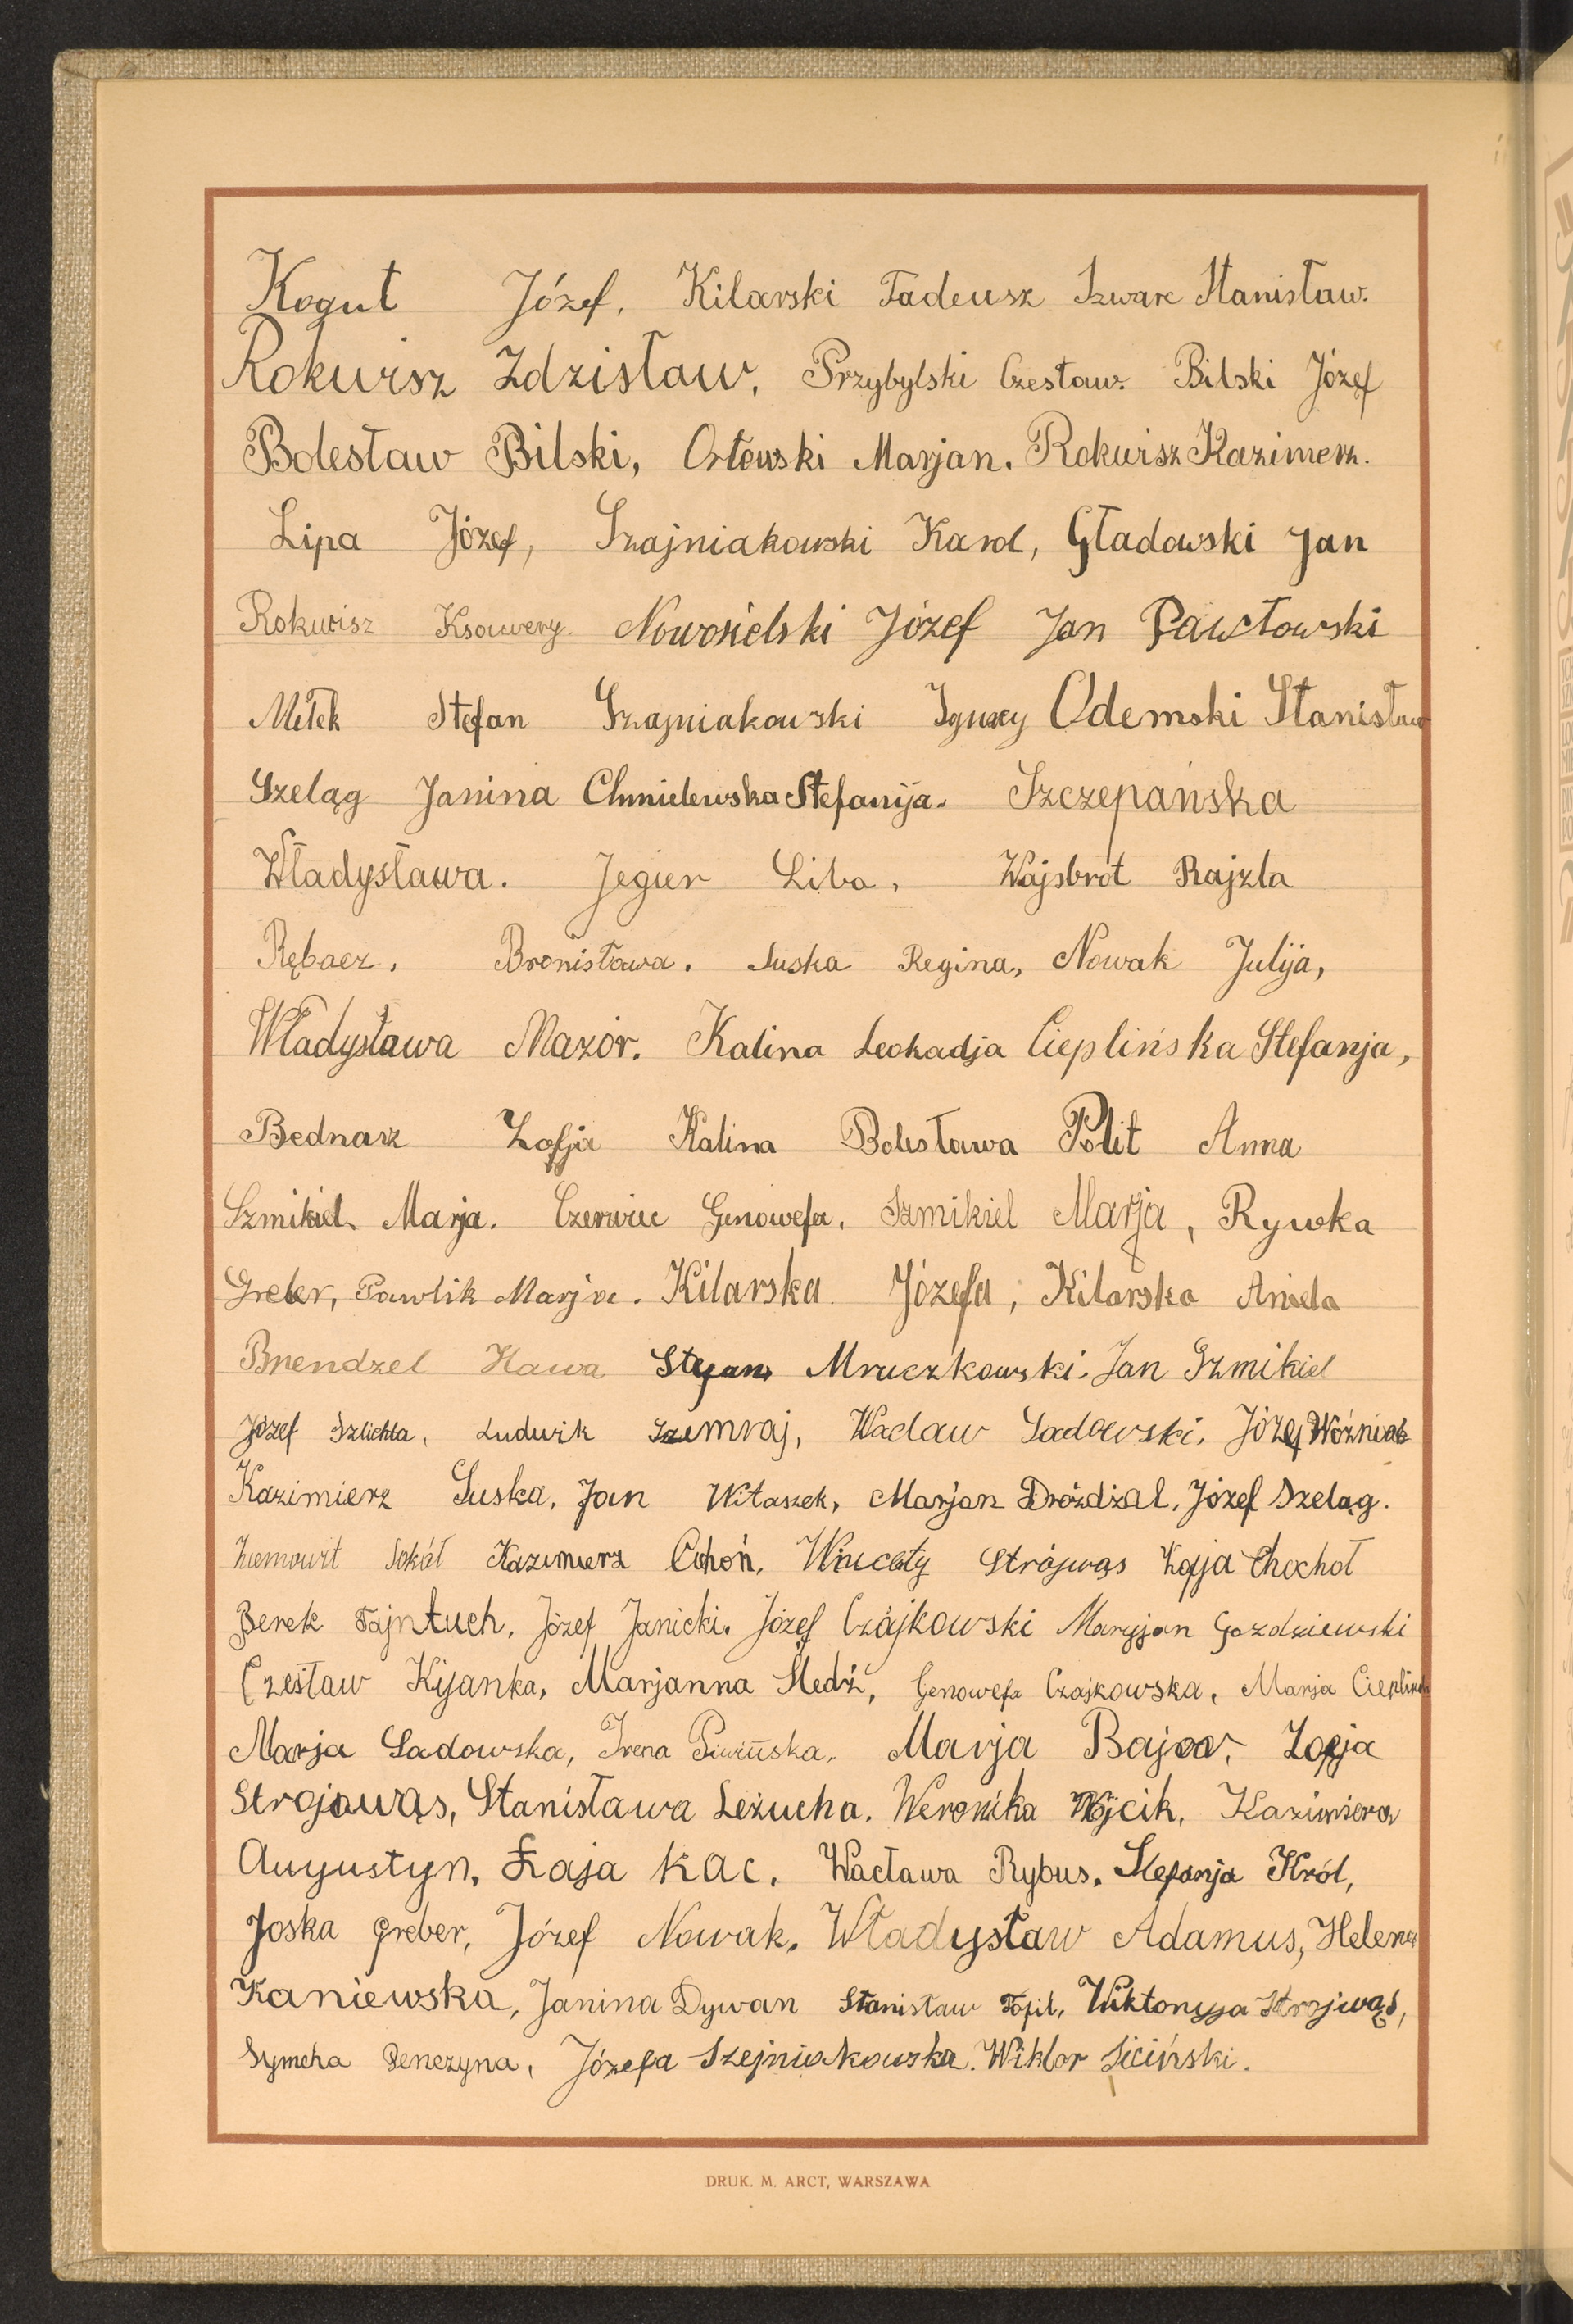 Kogut Józef, Kilarski Tadeusz Szwarc Stanisław.
Rokwisz Zdzisław, Przybylski Czesław. Bilski Józef
Bolesław Bilski, Orłowski Marjan. Rokwisz Kazimerz.
Lipa Józef, Szajniakowski Karol, Gładowski Jan
Rokwisz Ksawery. Nowosielski Józef Jan Pawłowski
Stefan Szajniakowski Ignacy Odemski Stanisław
Szeląg Janina Chmielewska Stefanija. Szczepańska
Władysława. Jegier Liba, Wajsbrot Rajzla
Rębacz, Bronisława. Suska Regina, Nowak Julija,
Władysława Mazór. Kalina Leokadja Cieplińska Stefanja,
Bednarz Zofja Kalina Bolesława Polit Anna
Szmikiel Marja. Czerwiec Genowefa, Szmikiel Marja, Rywka
Greber, Pawlik Marja. Kilarska Józefa, Kilarska Aniela
Brendzel Hawa Stefan Mruczkowski. Jan Szmikiel
Józef Szlichta, Ludwik Szemraj, Wacław Sadowski, Józef Woźniak
Kazimierz Suska, Jan Witaszek, Marjan Dróżdżal, Józef Szeląg.
Ziemowit Sokół Kazimierz Cichoń, Wincęty Strójwąs Zofja Chochoł
Berek Fajntuch, Józef Janicki. Józef Czajkowski Maryjan Gozdziewski
Czesław Kijanka, Marjanna Śledź, Genowefa Czajkowska, Marja
Marja Sadowska, Irena Marja Zofja
Strojawąs, Stanisława Leżucha. Weronika Wójcik, Kazimiera
Augustyn, Łaja Kac. Wacława Rybus. Stefanja Król,
Joska Greber, Józef Nowak. Władysław Adamus, Helena
Kaniewska, Janina Dywan Stanisław Topil, Wiktoryja Strojwąs,
Symcha Penczyna, Józefa Szejniakowska. Wiktor Siciński.
DRUK. M. ARCT, WARSZAWA